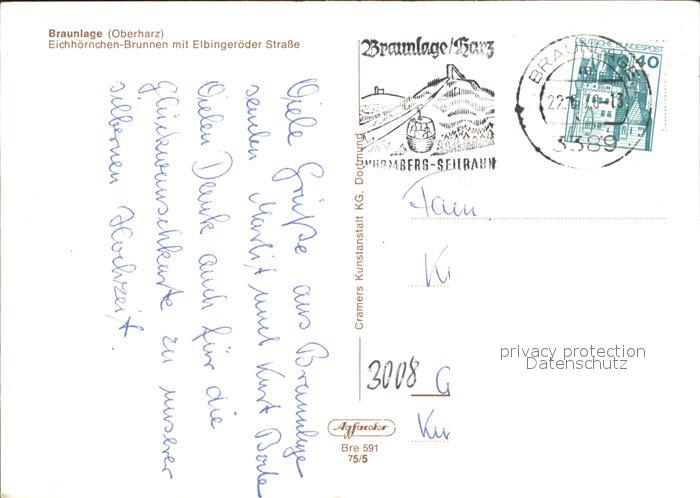 Braunlage (Oberharz)
Eichhörnchen-Brunnen mit Elbingeröder Straße
Viele Grüße aus Braunlage
senden Marlis und Kurt Bode
Vielen Dank auch für die
Glückwunschkarte zu unserer
silbernen Hochzeit.
Cramers Kunstanstalt KG, Dortmund
Braunlage/Harz
WURMBERG-SEILBAHN
BRAUNLAGE
3389
DEUTSCHE BUNDESPOST
40
Fam.
Ki
3008 G
Ku
privacy protection
Datenschutz
Agfacolor
Bre 591
75/5